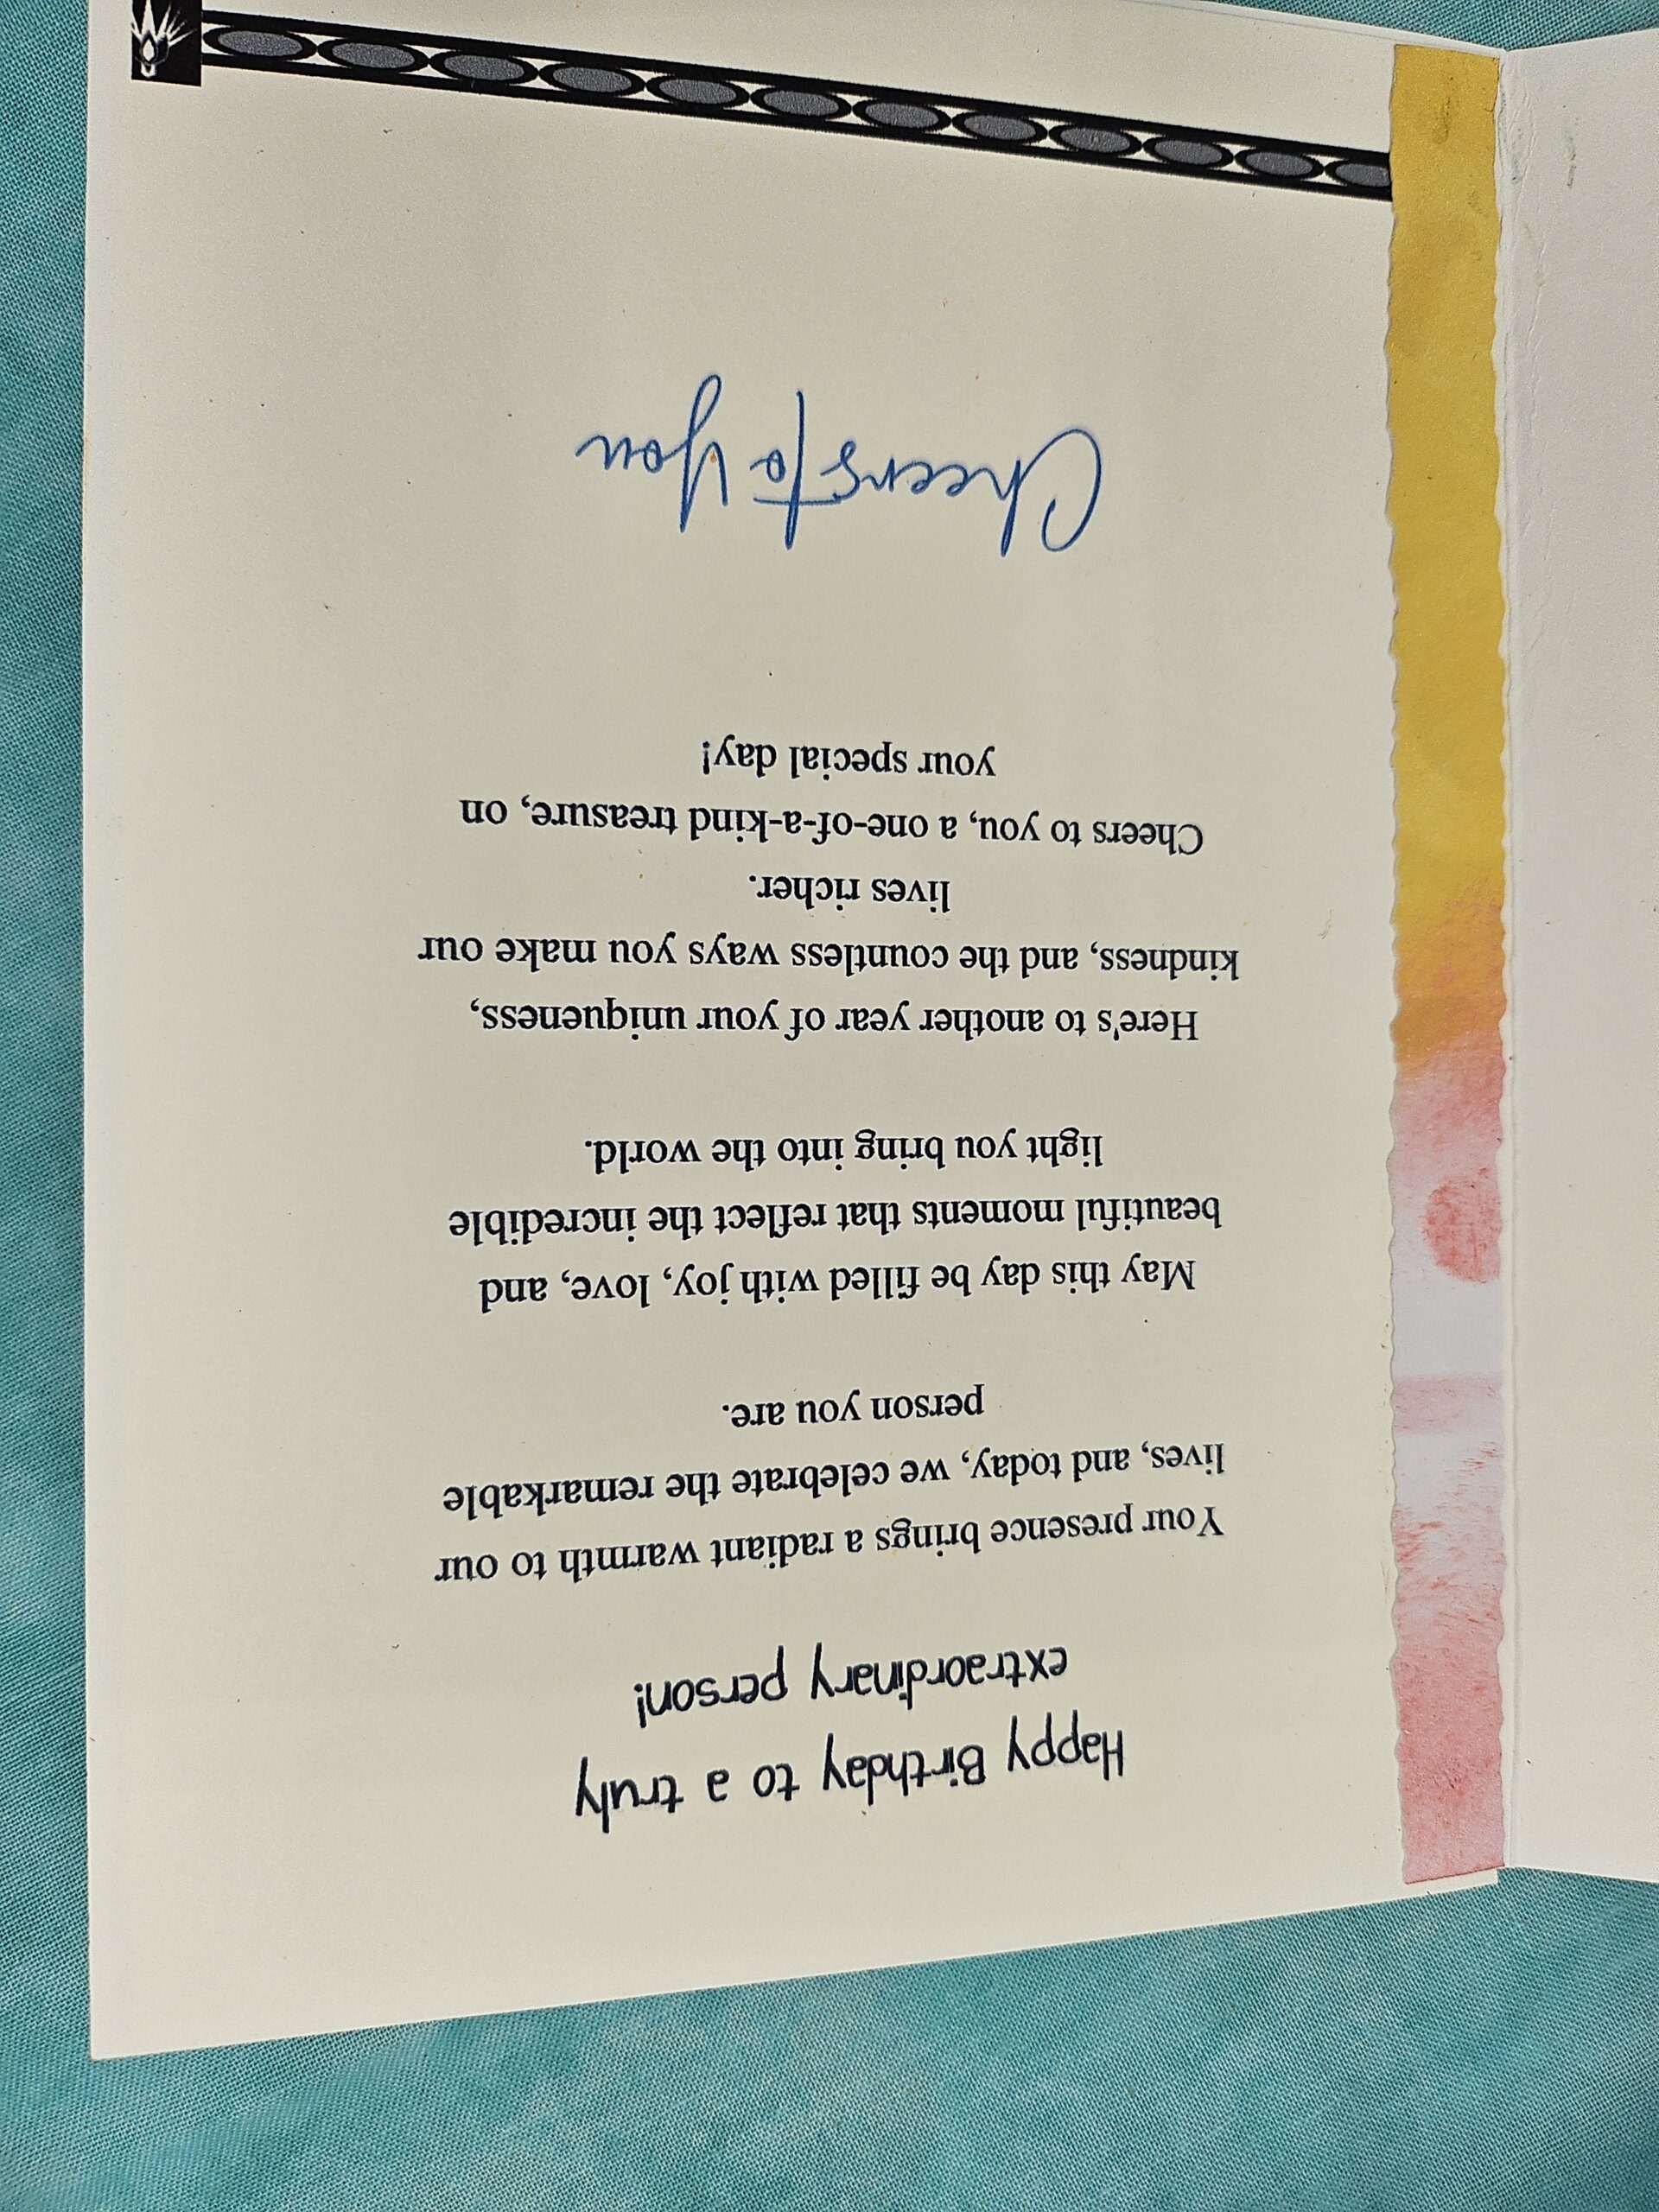 Happy Birthday to a truly
extraordinary person!
Your presence brings a radiant warmth to our
lives, and today, we celebrate the remarkable
person you are.
May this day be filled with joy, love, and
beautiful moments that reflect the incredible
light you bring into the world.
Here's to another year of your uniqueness,
kindness, and the countless ways you make our
lives richer.
Cheers to you, a one-of-a-kind treasure, on
your special day!
Cheers to you